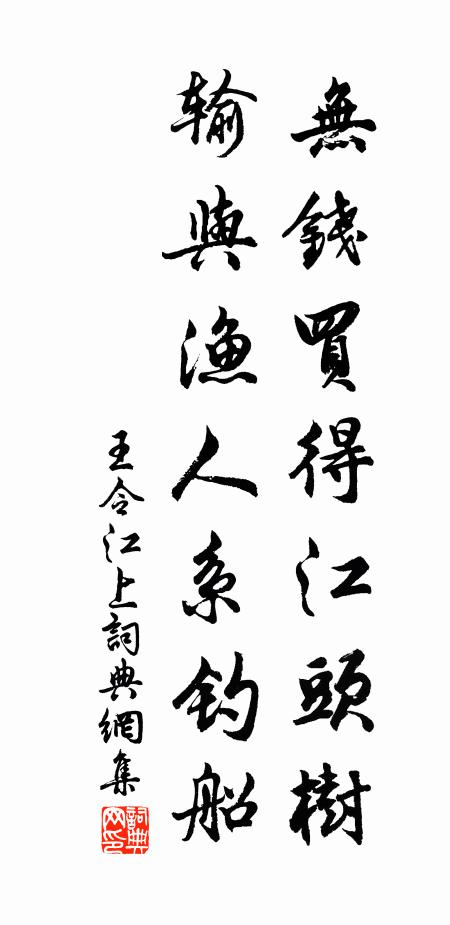 無錢買得江頭樹
輸與漁人系釣船
王令江上詞典網集
詞典网印